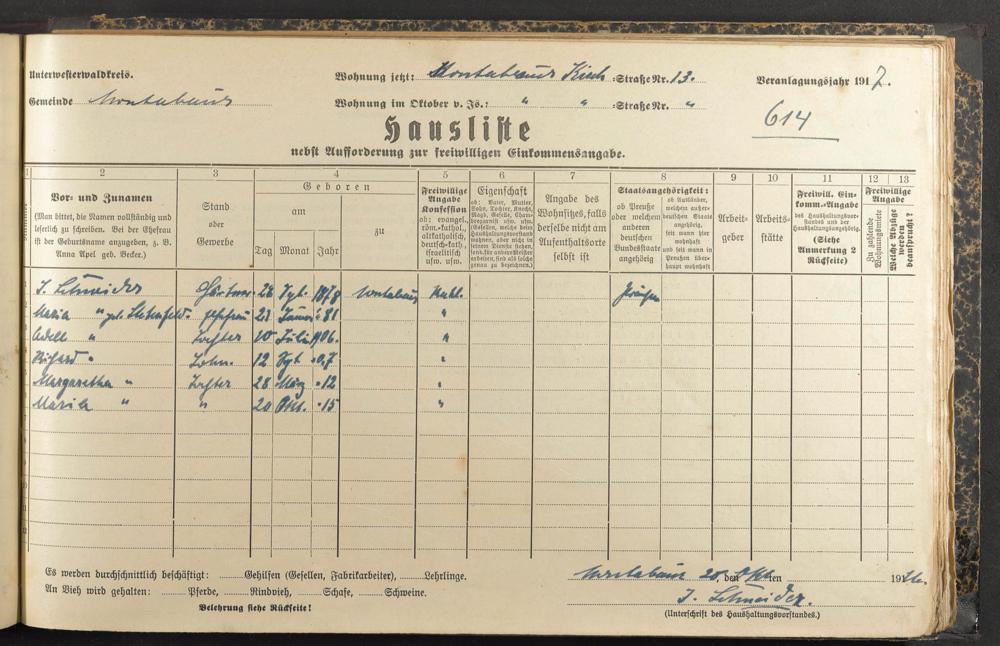 Unterwesterwaldkreis.
Wohnung jetzt: Montabaur Kirch-Straße Nr. 13.
Veranlagungsjahr 1917.
Gemeinde Montabaur
Wohnung im Oktober v. Js.: " " -Straße Nr. "
614
Hausliste
nebst Aufforderung zur freiwilligen Einkommensangabe.
1 2 3 4 5 6 7 8 9 10 11 12 13
Vor- und Zunamen
(Man bittet, die Namen vollständig und
leserlich zu schreiben. Bei der Ehefrau
ist der Geburtsname anzugeben, z. B.
Anna Apel geb. Becker.)
Stand
oder
Gewerbe
Geboren
am
Tag Monat Jahr
zu
Freiwillige
Angabe
Konfession
ob: evangel.,
röm.-kathol.,
altkatholisch,
deutsch-kath.,
israelitisch
usw. usw.
Eigenschaft
ob: Vater, Mutter,
Sohn, Tochter, Knecht,
Magd, Geselle,
Angabe des
Wohnsitzes, falls
derselbe nicht am
Aufenthaltsorte
selbst ist
Staatsangehörigkeit:
ob Preuße
oder welchem
anderen
deutschen
Bundesstaate
angehörig
ob Ausländer,
welchem außer-
deutschen Staate
angehörig,
seit wann hier
wohnhaft
und seit wann in
Preußen über-
haupt wohnhaft
Arbeit-
geber
Arbeits-
stätte
Freiwill. Ein-
komm.-Angabe
des Haushaltungsvor-
standes und der
Haushaltungsangehörig.
(Siehe
Anmerkung 2
Rückseite)
Freiwillige
Angabe
Zu zahlende
Wohnungsmiete
Welche Abzüge
werden
beansprucht?
J. Schneider Gärtner 28 Spt. 1878 Montabaur Kath. Preußen
Maria " geb. Ehefrau 23 Januar " 81 "
Adele " Tochter 10 Juli 1906. "
Richard " Sohn. 12 Spt. " 07 "
Margaretha " Tochter 28 März " 12 "
Maria " " 20 Okt. " 15 "
Es werden durchschnittlich beschäftigt: Gehilfen (Gesellen, Fabrikarbeiter), Lehrlinge.
An Vieh wird gehalten: Pferde, Rindvieh, Schafe, Schweine.
Belehrung siehe Rückseite!
Montabaur 20, den Okt. ten 1916.
J. Schneider.
(Unterschrift des Haushaltungsvorstandes.)